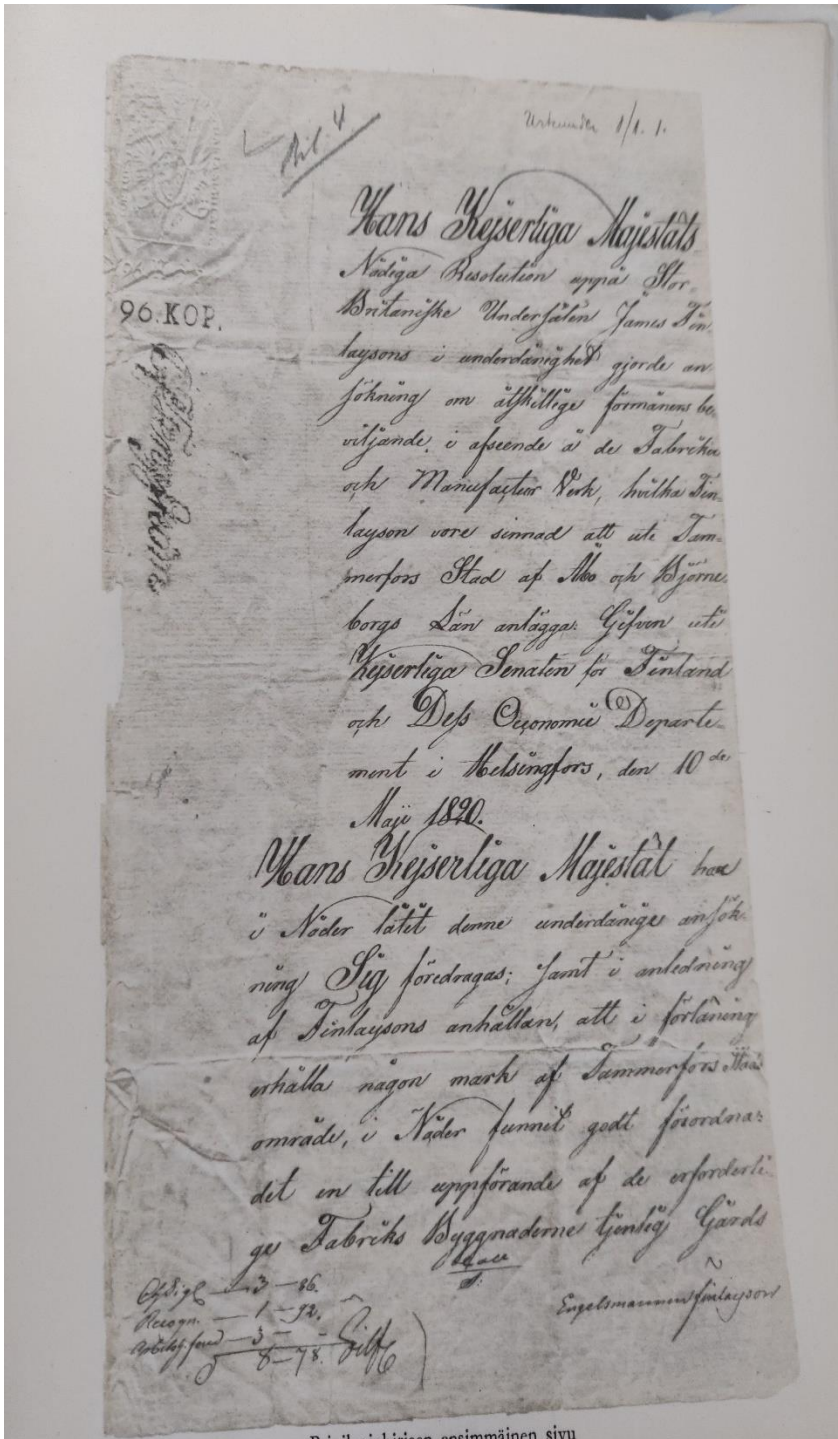 Bil. 4
Urkunder 1/1. 1.
96. KOP.
Hans Kejserliga Majestäts
Nådiga Resolution uppå Stor-
Britaniske Undersåten James Fin-
laysons i underdånighet gjorde an-
sökning om åtskillige förmåners be-
viljande, i afseende å de Fabriker
och Manufactur Verk, hvilka Fin-
layson vore sinnad att uti Tam-
merfors Stad af Åbo och Björne-
borgs Län anlägga: Gifven uti
Kejserliga Senaten för Finland
och Dess Oeconomie Departe-
ment i Helsingfors, den 10de
Maji 1820.
Hans Kejserliga Majestät har
i Nåder låtit denne underdånige ansök-
ning Sig föredragas; samt i anledning
af Finlaysons anhållan, att i förläning
erhålla någon mark af Tammerfors Stads
område, i Nåder funnit godt förordna:
det en till uppförande af de erforderli-
ge Fabriks Byggnaderne tjenlig Gårds
3 — 86.
Recogn. — 1 — 92.
3 —
8 — 78.
Engelsmannen Finlayson
Privilegiokirjan ensimmäinen sivu